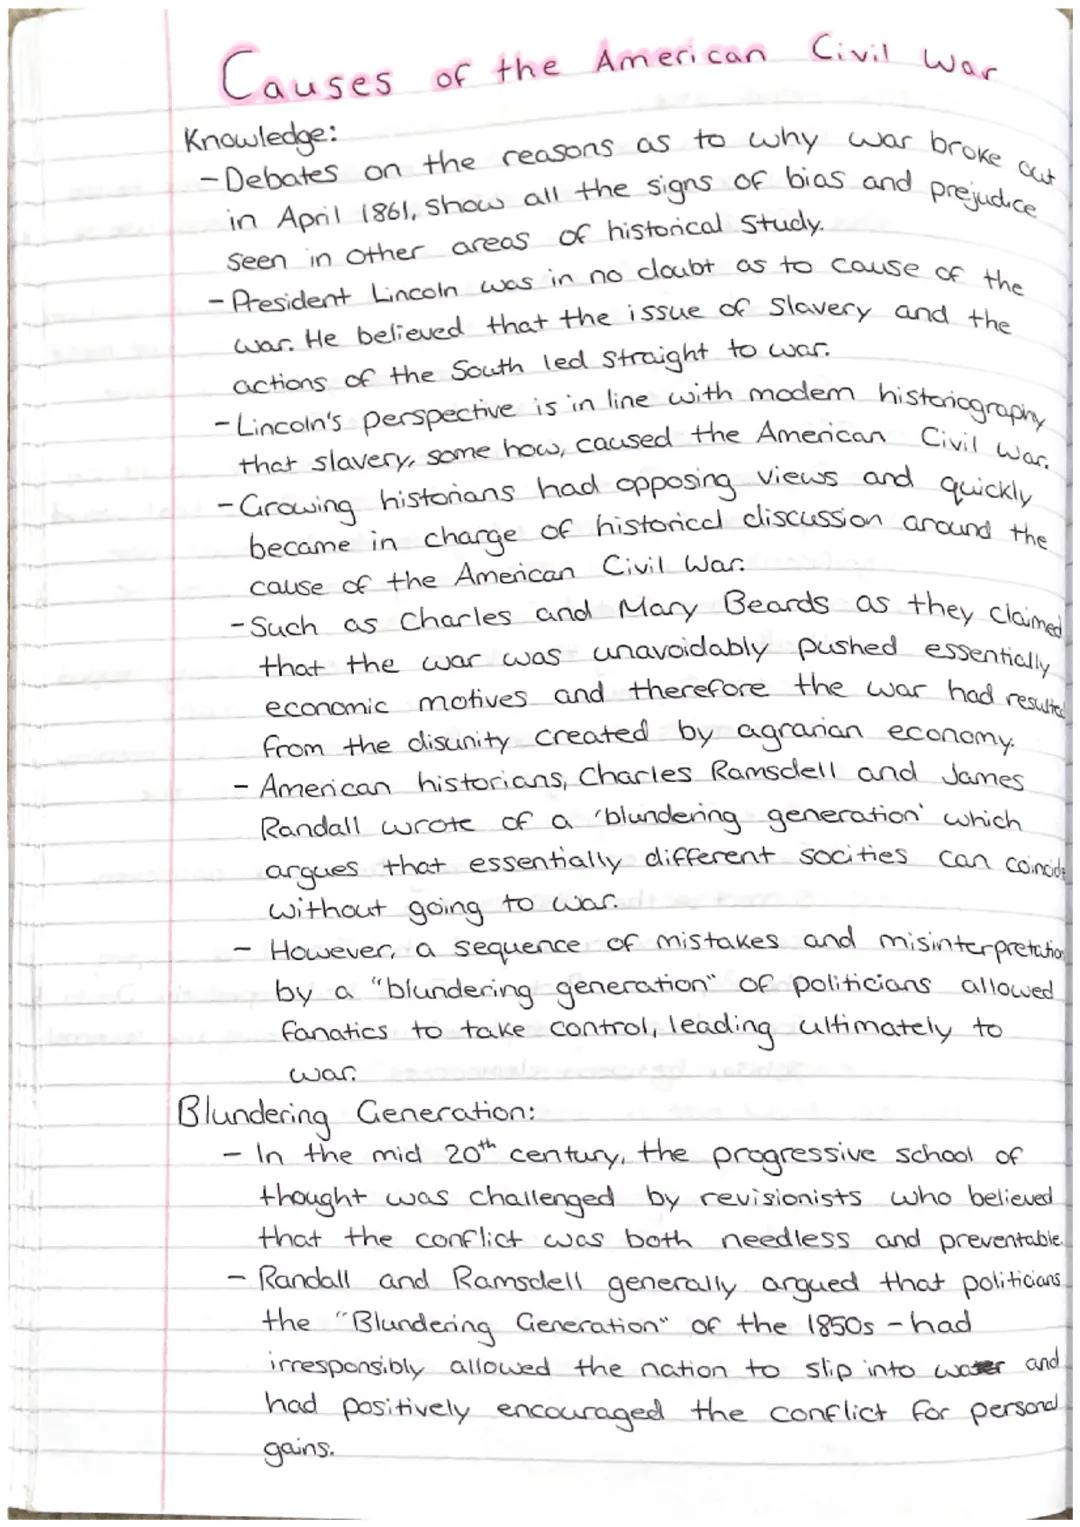 Causes of the American Civil War
Knowledge:
- Debates on the reasons as to why war broke out
in April 1861, show all the signs of bias and prejudice
seen in other areas of historical study.
- President Lincoln was in no doubt as to cause of the
war. He believed that the issue of slavery and the
actions of the South led straight to war.
- Lincoln's perspective is in line with modern historiography
that slavery, some how, caused the American Civil War.
- Growing historians had opposing views and quickly
became in charge of historical discussion around the
cause of the American Civil War.
- Such as Charles and Mary Beards as they claimed
that the war was unavoidably pushed essentially
economic motives and therefore the war had resulted
from the disunity created by agrarian economy.
- American historians, Charles Ramsdell and James
Randall wrote of a 'blundering generation' which
argues that essentially different socities can coincide
without going to war.
- However, a sequence of mistakes and misinterpretation
by a "blundering generation" of politicians allowed
fanatics to take control, leading ultimately to
war.
Blundering Generation:
- In the mid 20th century, the progressive school of
thought was challenged by revisionists who believed
that the conflict was both needless and preventable.
- Randall and Ramsdell generally argued that politicians
the "Blundering Generation" of the 1850s - had
irresponsibly allowed the nation to slip into and
had positively encouraged the conflict for personal
gains.